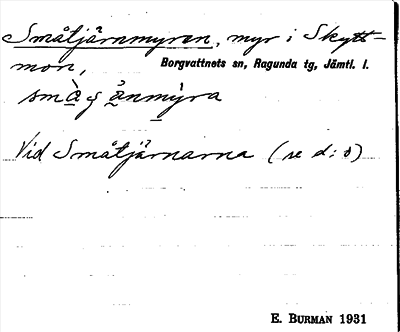 Småtjärnmyren, myr i Skytt-
mon, Borgvattnets sn, Ragunda tg, Jämtl. l.
Vid Småtjärnarna (se d:o)
E. BURMAN 1931